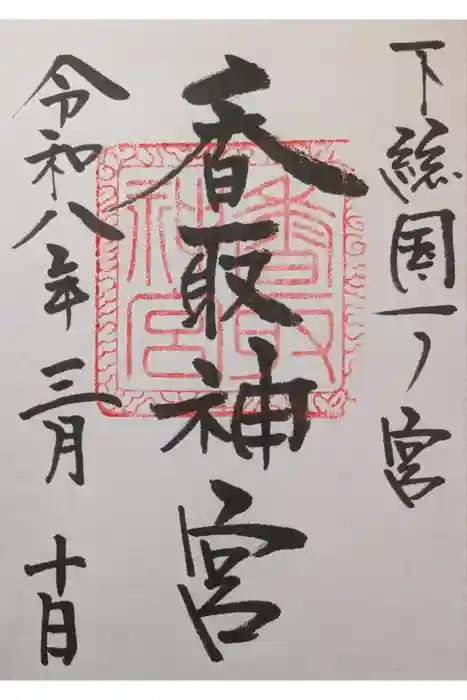 下総国一ノ宮
香取神宮
香取神宮
令和八年三月十日